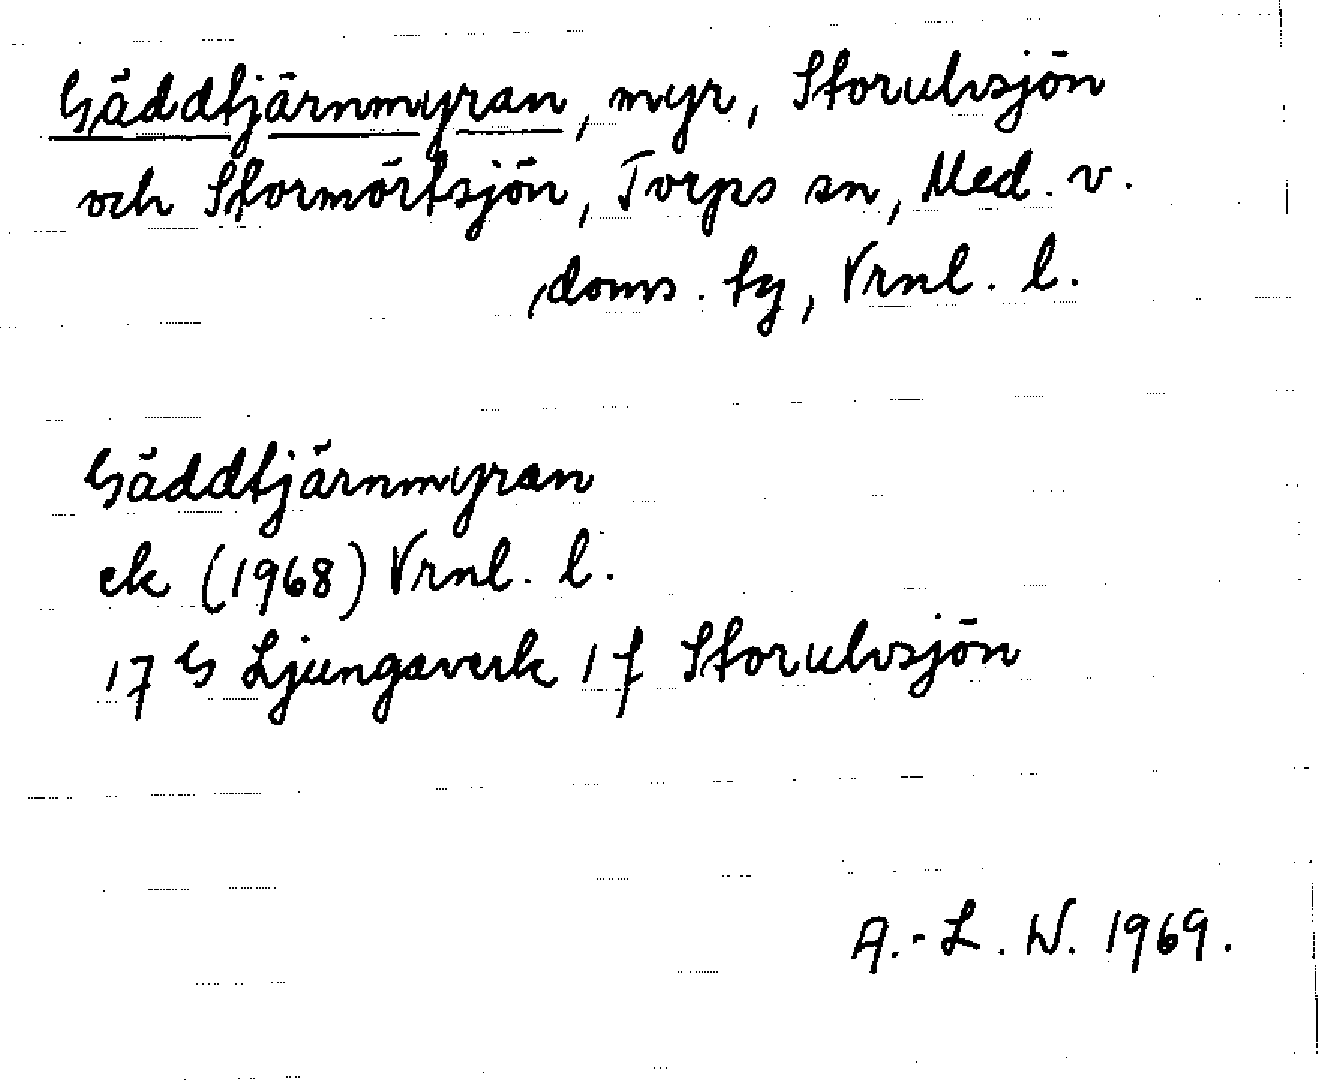 Gäddtjärnmyran, myr, Storulvsjön
och Stormörtsjön, Torps sn, Med. v.
doms. tg, Vrnl. l.
Gäddtjärnmyran
ek (1968) Vrnl. l.
17 G Ljungaverk 1f Storulvsjön
A.-L. W. 1969.